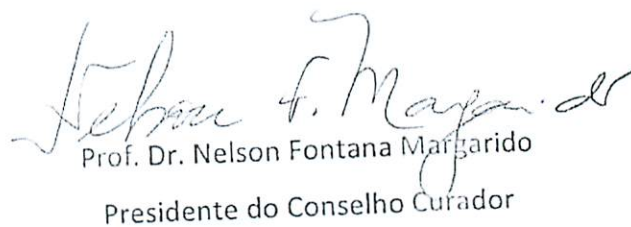 Nelson F. Margarido
Prof. Dr. Nelson Fontana Margarido
Presidente do Conselho Curador